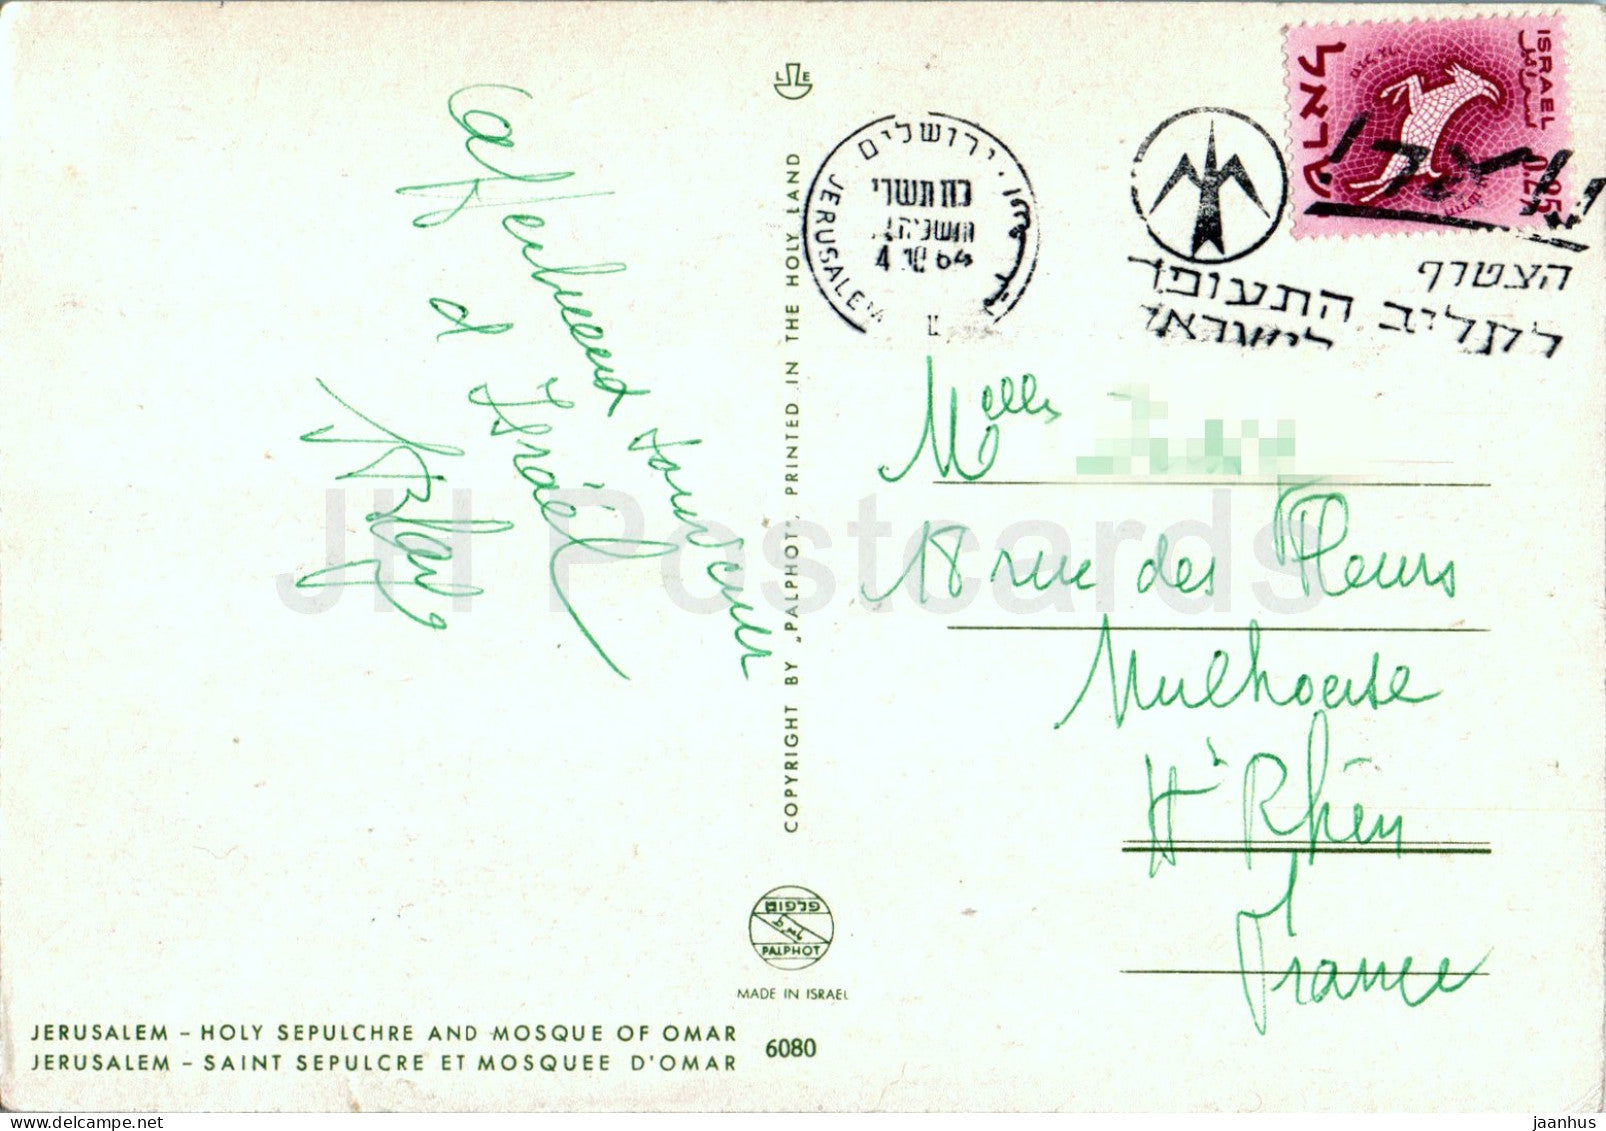 Affectueux souvenir
d'Israël
L E
COPYRIGHT BY „PALPHOT", PRINTED IN THE HOLY LAND
ירושלים
JERUSALEM
כח תשרי
4 10 64
ישראל
ISRAEL
0.25
הצטרף
לקליב התעופה
לישראל
Melles
18 rue des Fleurs
Mulhouse
Ht Rhin
France
פלפוט
PALPHOT
MADE IN ISRAEL
JERUSALEM – HOLY SEPULCHRE AND MOSQUE OF OMAR
JERUSALEM – SAINT SEPULCRE ET MOSQUEE D'OMAR
6080
JH Postcards
www.delcampe.net
jaanhus